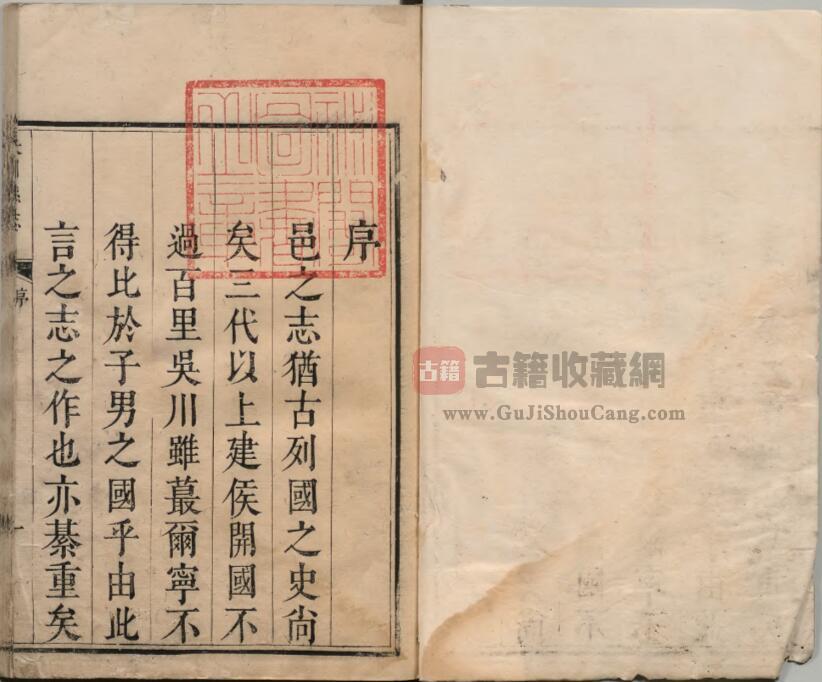 序
邑之志猶古列國之史尙
矣三代以上建侯開國不
過百里吳川雖蕞爾寧不
得比於子男之國乎由此
言之志之作也亦綦重矣
序
一
古籍
古籍收藏網
www.GuJiShouCang.com